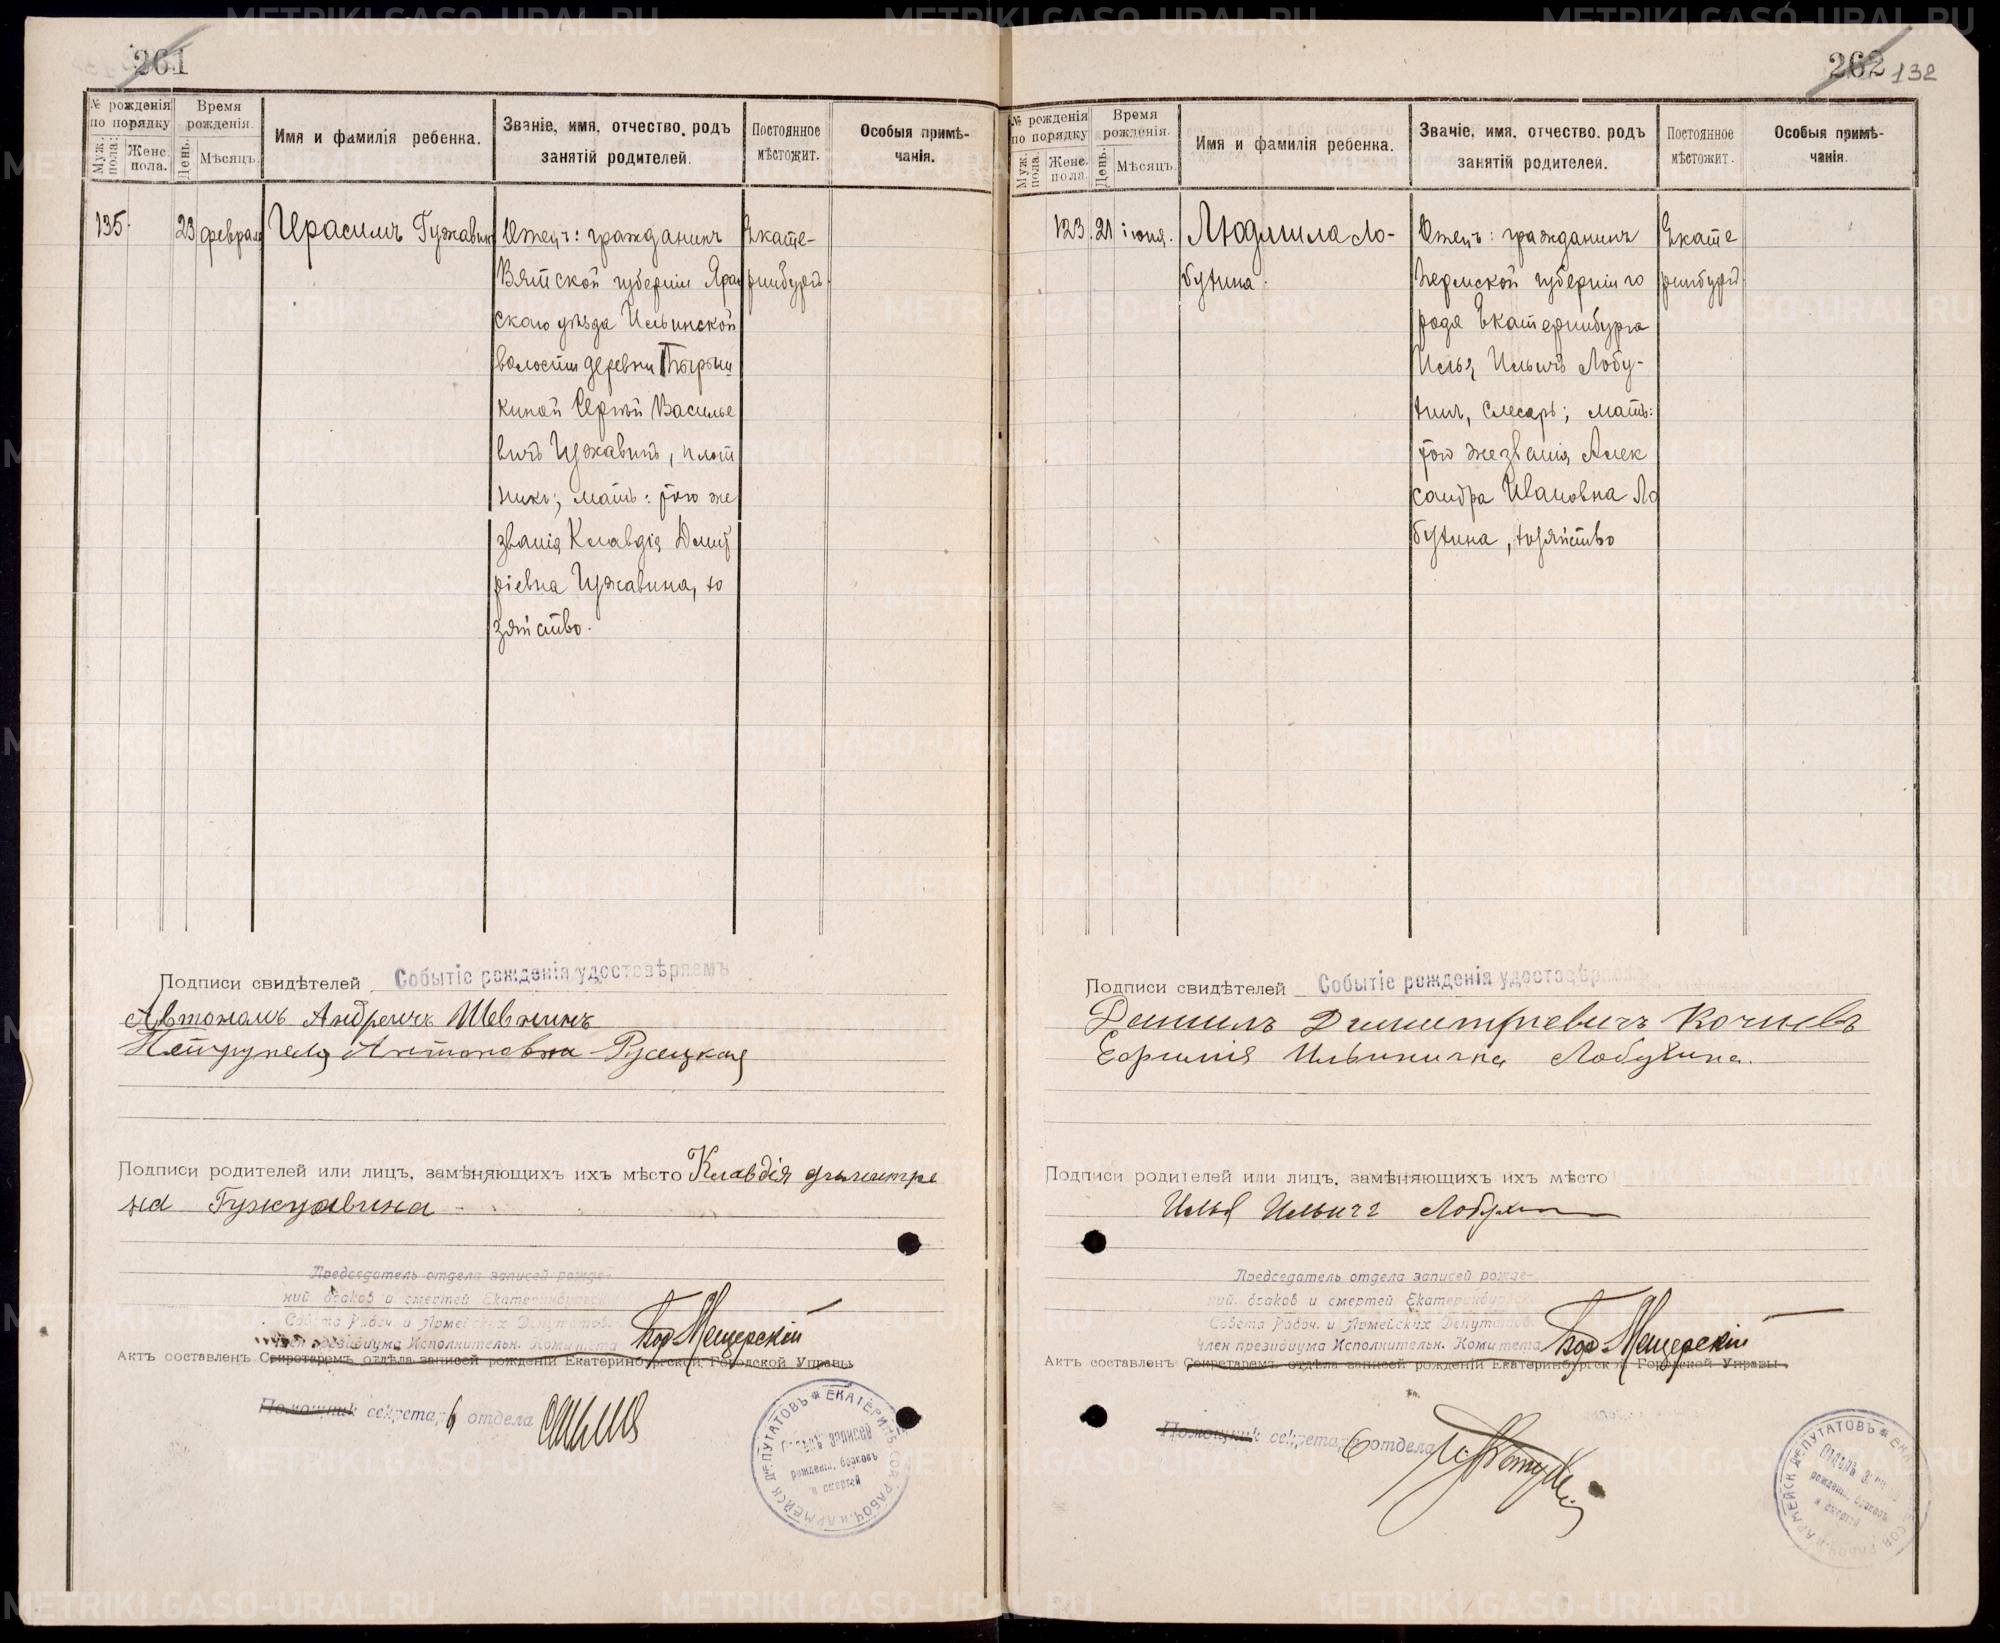 261
№ рожденія по порядку
Муж. пола.
Женс. пола.
Время рожденія.
День.
Мѣсяцъ.
Имя и фамилія ребенка.
Званіе, имя, отчество, родъ занятій родителей.
Постоянное мѣстожит.
Особыя примѣчанія.
135
23 феврал
Герасимъ Гужавин
Отецъ: гражданинъ
Вятской губерніи Яран
скаго уѣзда Ильинской
волости деревни
киной Сергѣй Василье
вичъ Гужавинъ, плот
никъ; мать: того же
званія Клавдія Дмит
ріевна Гужавина, хо
зяйство.
Екате-
ринбургъ.
Подписи свидѣтелей Событіе рожденія удостовѣряемъ
Автономъ Андреичъ Шевнинъ
Антоновна Русецкая
Подписи родителей или лицъ, замѣняющихъ ихъ мѣсто Клавдія дмитре
на Гужавина
Предсѣдатель отдела записей рожде-
ний, браков и смертей Екатеринбургск.
Совѣта Рабоч. и Армейских Депутатов.
президиума Исполнительн. Комитета Бор Мещерскій
Актъ составленъ Секретаремъ отдѣла записей рожденій Екатеринбургской Городской Управы
Помощник секретаря отдела
ЕКАТЕРИНБ. СОВ. РАБОЧ. и АРМЕЙСК. ДЕПУТАТОВЪ
Отдѣлъ записей
рожденія, браковъ
и смертей
262 132
№ рожденія по порядку
Муж. пола.
Женс. пола.
Время рожденія.
День.
Мѣсяцъ.
Имя и фамилія ребенка.
Званіе, имя, отчество, родъ занятій родителей.
Постоянное мѣстожит.
Особыя примѣчанія.
123. 21 іюня.
Людмила Ло-
бухина.
Отецъ: гражданинъ
Пермской губерніи го
рода Екатеринбурга
Илья Ильичъ Лобу-
хинъ, слесарь; мать:
того же званія Алек
сандра Ивановна Ло
бухина, хозяйство
Екате
ринбургъ
Подписи свидѣтелей Событіе рожденія удостовѣряемъ
Данилъ Димитріевичъ Кочневъ
Ефимія Ильинична Лобухина.
Подписи родителей или лицъ, замѣняющихъ ихъ мѣсто
Илья Ильичъ Лобухин
Предсѣдатель отдела записей рожде-
ний, браков и смертей Екатеринбургск.
Совѣта Рабоч. и Армейских Депутатов.
Член президиума Исполнительн. Комитета Бор Мещерскій
Актъ составленъ Секретаремъ отдѣла записей рожденій Екатеринбургской Городской Управы.
Помощник секретаря отдела
ЕКАТЕРИНБ. СОВ. РАБОЧ. и АРМЕЙСК. ДЕПУТАТОВЪ
Отдѣлъ записей
рожденія, браковъ
и смертей
METRIKI.GASO-URAL.RU